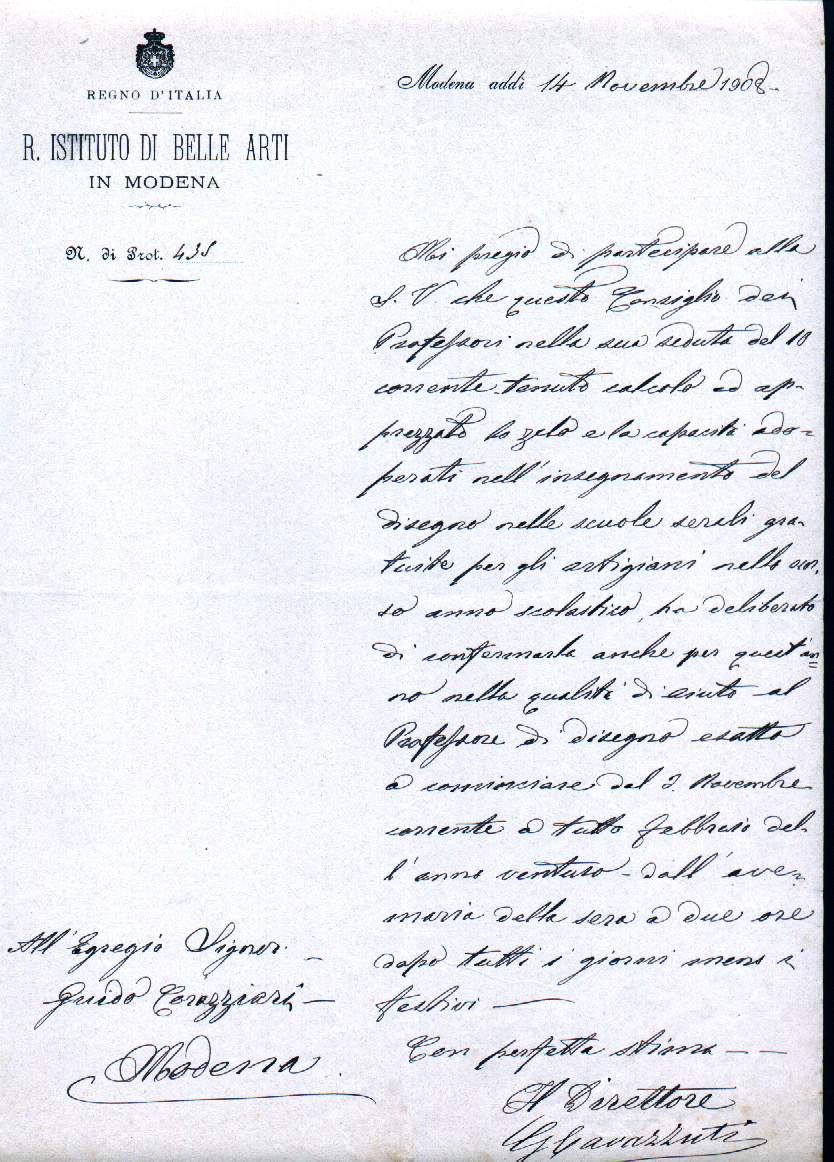 REGNO D'ITALIA
R. ISTITUTO DI BELLE ARTI
IN MODENA
N. di Prot. 435
Modena addì 14 Novembre 1908.
Mi pregio di partecipare alla
S. V. che questo Consiglio dei
Professori nella sua seduta del 10
corrente tenuto calcolo ed ap-
prezzato lo zelo e la capacità ado-
perati nell'insegnamento del
disegno nelle scuole serali gra-
tuite per gli artigiani nello scor-
so anno scolastico, ha deliberato
di confermarla anche per quest'an=
no nella qualità di aiuto al
Professore di disegno esatto
a cominciare dal 3. Novembre
corrente a tutto febbraio del-
l'anno venturo - dall'ave-
maria della sera a due ore
dopo tutti i giorni meno i
festivi —
Con perfetta stima — —
Il Direttore
G Cavazzuti
All'Egregio Signor.
Guido —
Modena.